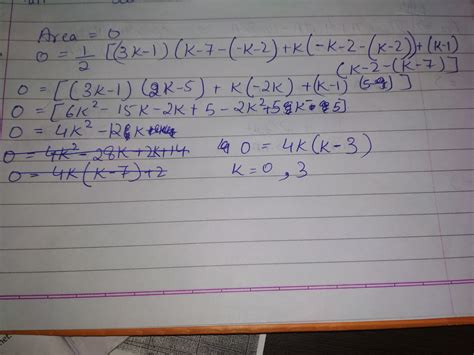 Area = 0
0 = 1/2 [(3k-1)(k-7-(-k-2)+k(-k-2-(k-2)+(k-1)
(k-2-(k-7)]
0 = [(3k-1)(2k-5) + k(-2k) + (k-1)(5)]
0 = [6k²-15k-2k+5-2k²+5k-5]
0 = 4k²-12k
0 = 4k²-28k+2k+14
0 = 4k(k-3)
0 = 4k(k-7)+2
k=0, 3